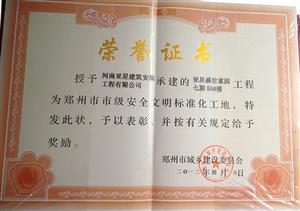 荣誉证书
授予 河南亚星建筑安装工程有限公司 承建的 亚星盛世家园七期 楼 工程
为郑州市市级安全文明标准化工地，特
发此状，予以表彰，并按有关规定给予
奖励。
郑州市城乡建设委员会
二〇一二年四月六日